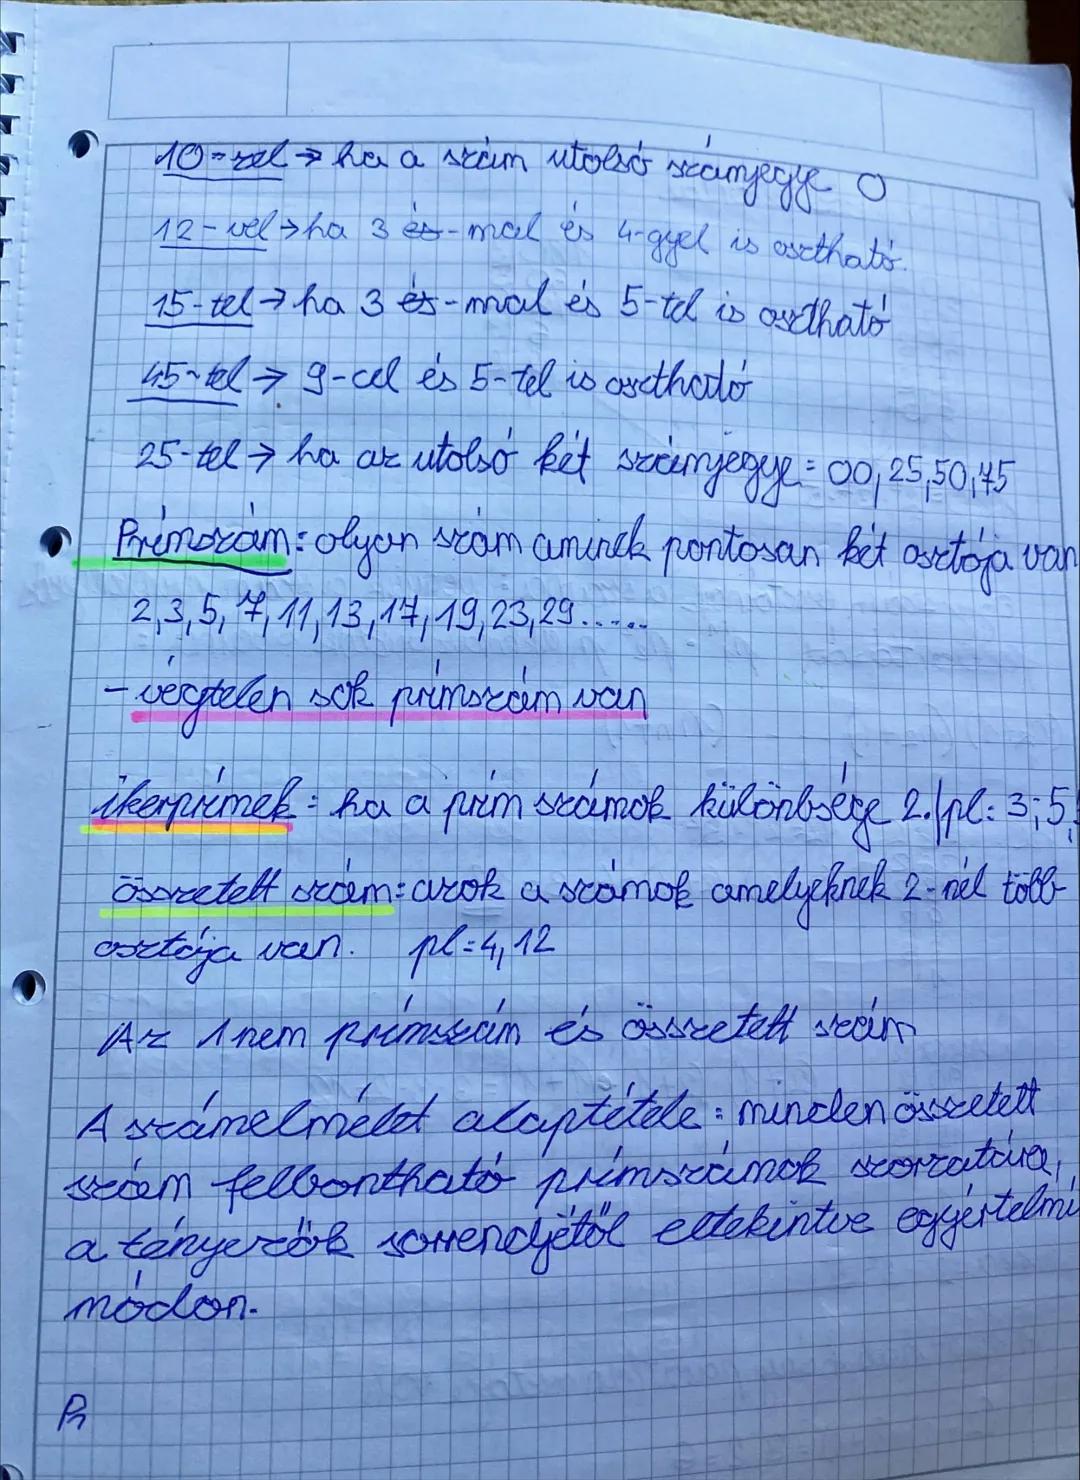 10-zel → ha a szám utolsó számjegye 0
12-vel → ha 3 és-mal és 4-gyel is osztható.
15-tel → ha 3 és-mal és 5-tel is osztható
45-tel → 9-cel és 5-tel is osztható
25-tel → ha az utolsó két számjegye = 00, 25, 50, 75
Prímszám: olyan szám aminek pontosan két osztója van
2, 3, 5, 7, 11, 13, 17, 19, 23, 29.....
- végtelen sok prímszám van
ikerprímek = ha a prím számok különbsége 2. / pl: 3; 5
összetett szám: azok a számok amelyeknek 2-nél több
osztója van. pl = 4, 12
Az 1 nem prímszám és összetett szám
A számelmélet alaptétele: minden összetett
szám felbontható prímszámok szorzatára,
a tényezők sorrendjétől eltekintve egyértelmű
módon.